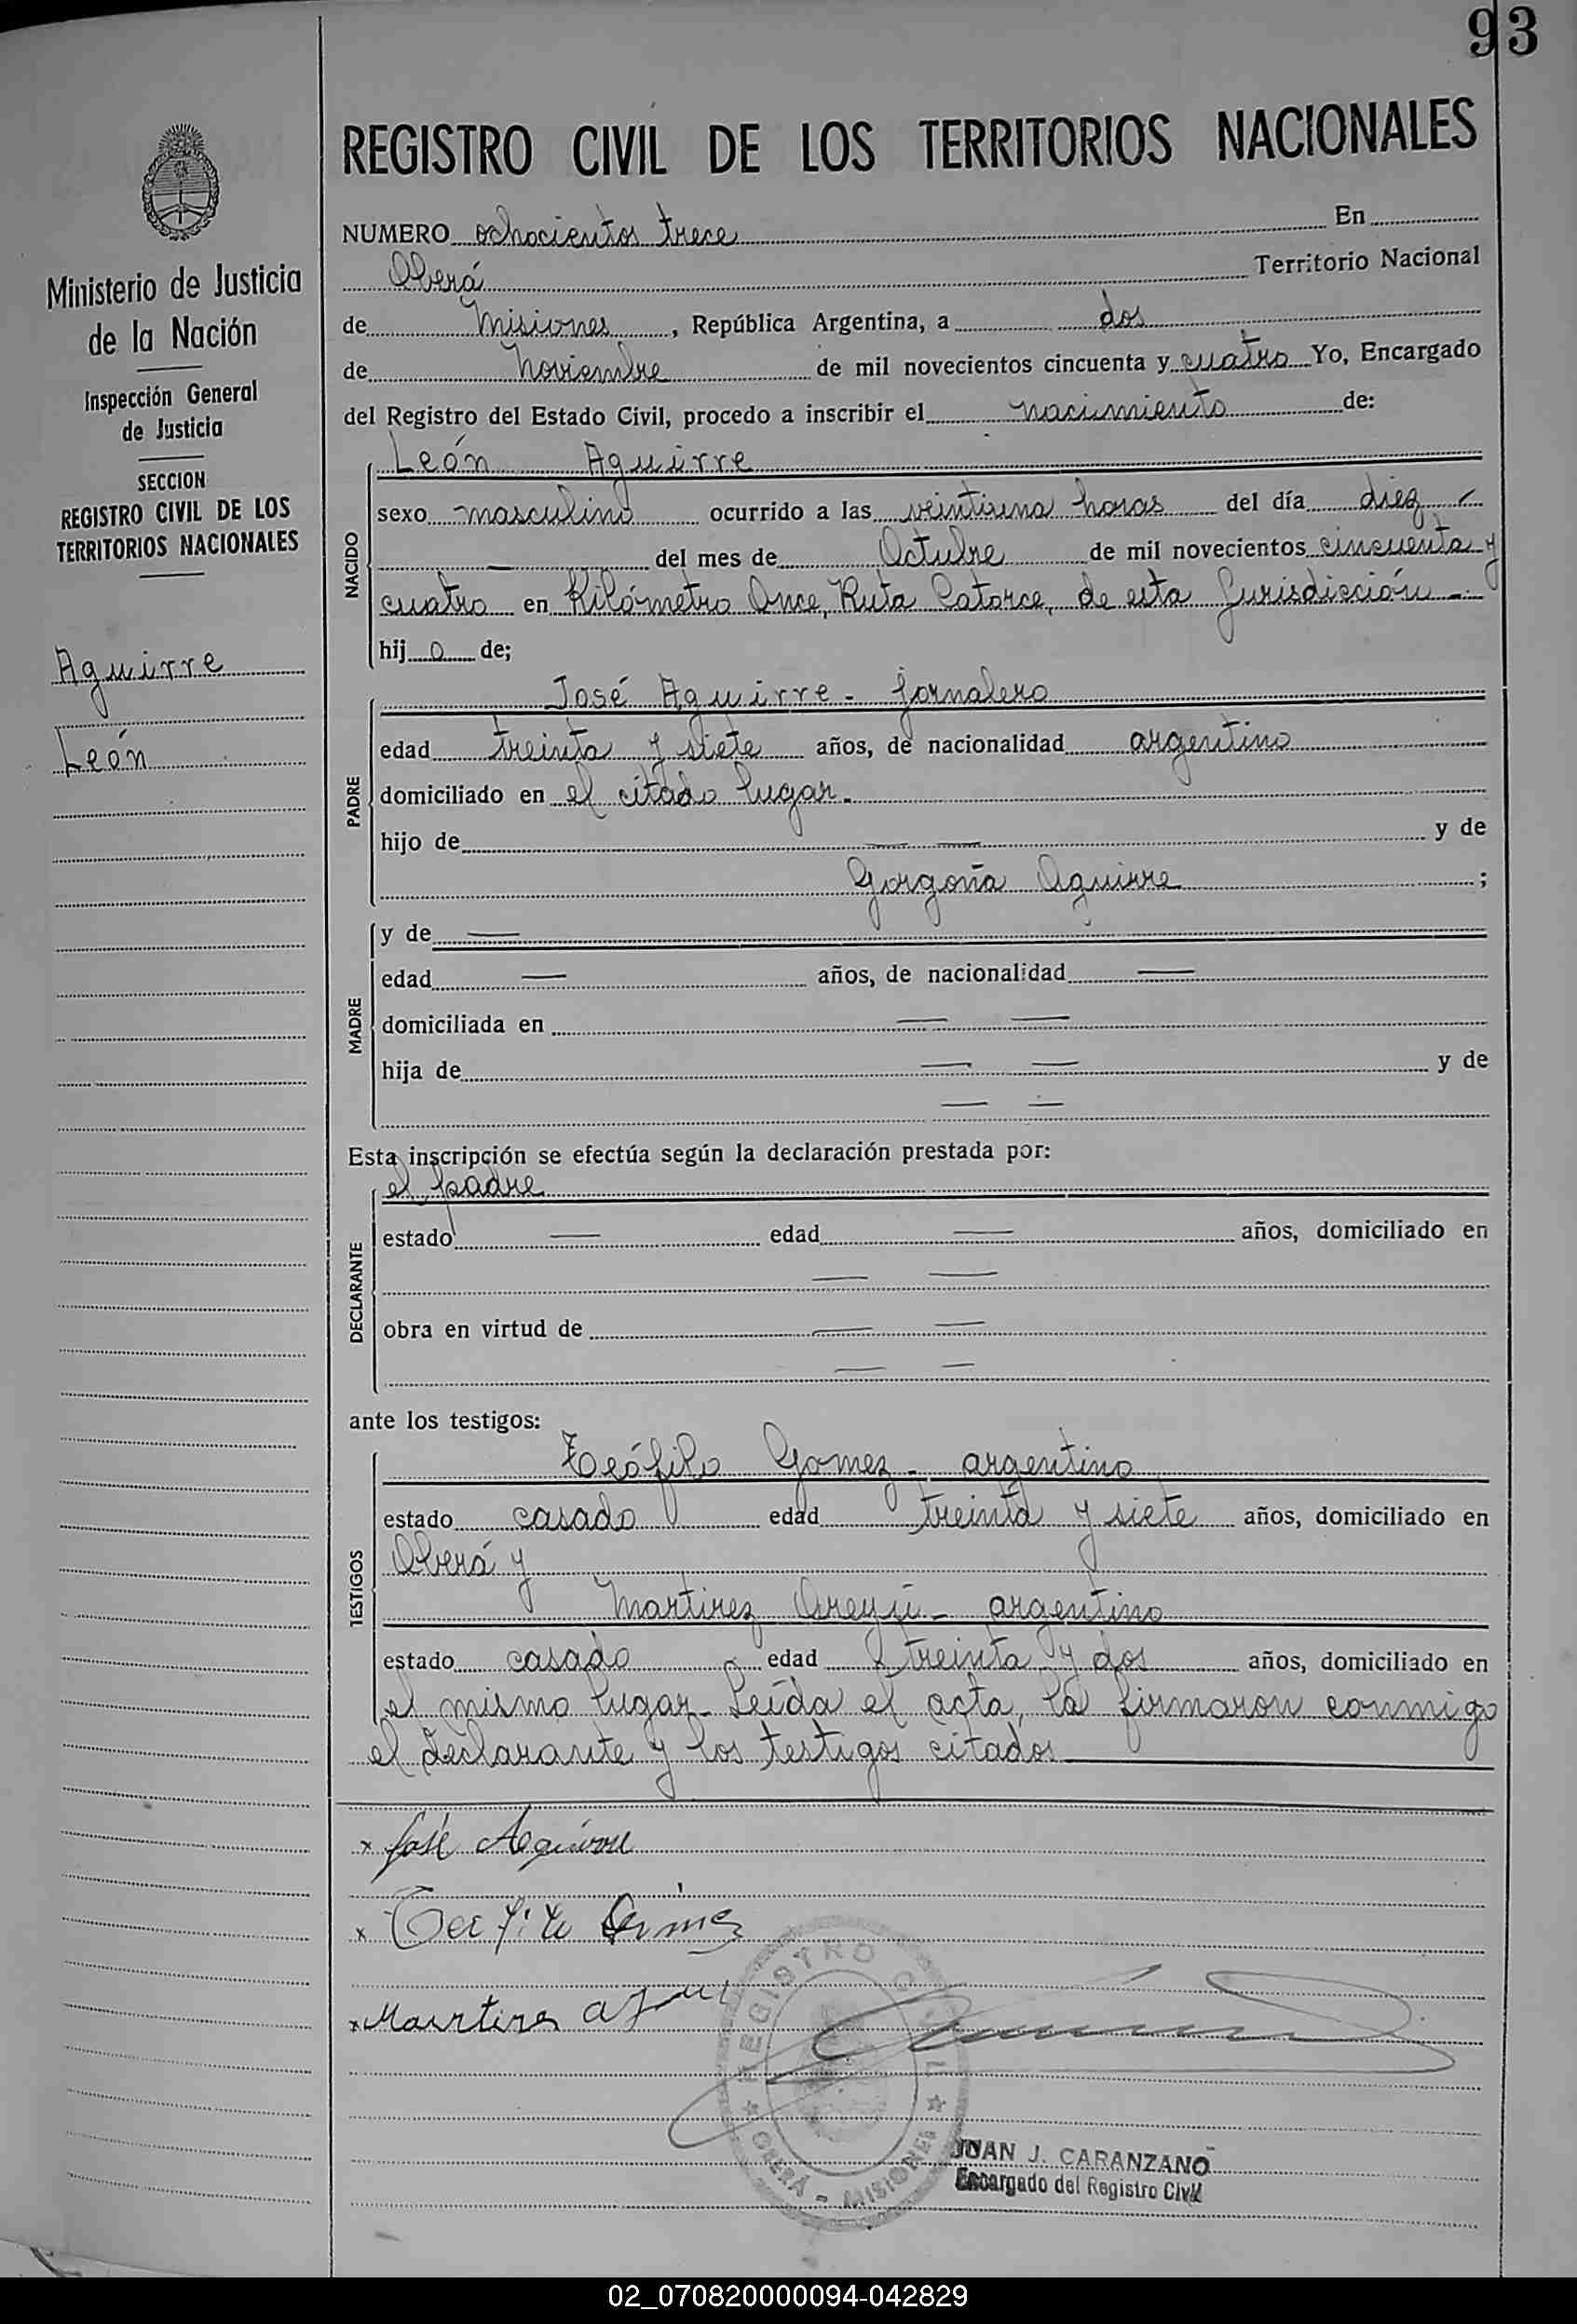 93
REGISTRO CIVIL DE LOS TERRITORIOS NACIONALES
Ministerio de Justicia
de la Nación
Inspección General
de Justicia
SECCION
REGISTRO CIVIL DE LOS
TERRITORIOS NACIONALES
Aguirre
León
NUMERO ochocientos trece En
Oberá Territorio Nacional
de Misiones, República Argentina, a dos
de Noviembre de mil novecientos cincuenta y cuatro Yo, Encargado
del Registro del Estado Civil, procedo a inscribir el nacimiento de:
NACIDO
León Aguirre
sexo masculino ocurrido a las veintiuna horas del día diez
— del mes de Octubre de mil novecientos cincuenta y
cuatro en Kilómetro Once, Ruta Catorce, de esta Jurisdicción —
hij o de;
PADRE
José Aguirre - jornalero
edad treinta y siete años, de nacionalidad argentino
domiciliado en el citado lugar.
hijo de — — y de
Gorgoña Aguirre ;
MADRE
y de —
edad — años, de nacionalidad —
domiciliada en — —
hija de — — y de
— —
Esta inscripción se efectúa según la declaración prestada por:
DECLARANTE
el padre
estado — edad — años, domiciliado en
— —
obra en virtud de — —
— —
ante los testigos:
TESTIGOS
Teófilo Gomez - argentino
estado casado edad treinta y siete años, domiciliado en
Oberá y
Martirez - argentino
estado casado edad treinta y dos años, domiciliado en
el mismo lugar - Leída el acta, la firmaron conmigo
el declarante y los testigos citados
x José Aguirre
x
x Martires
REGISTRO CIVIL
OBERÁ - MISIONES
JUAN J. CARANZANO
Encargado del Registro Civil
02_070820000094-042829